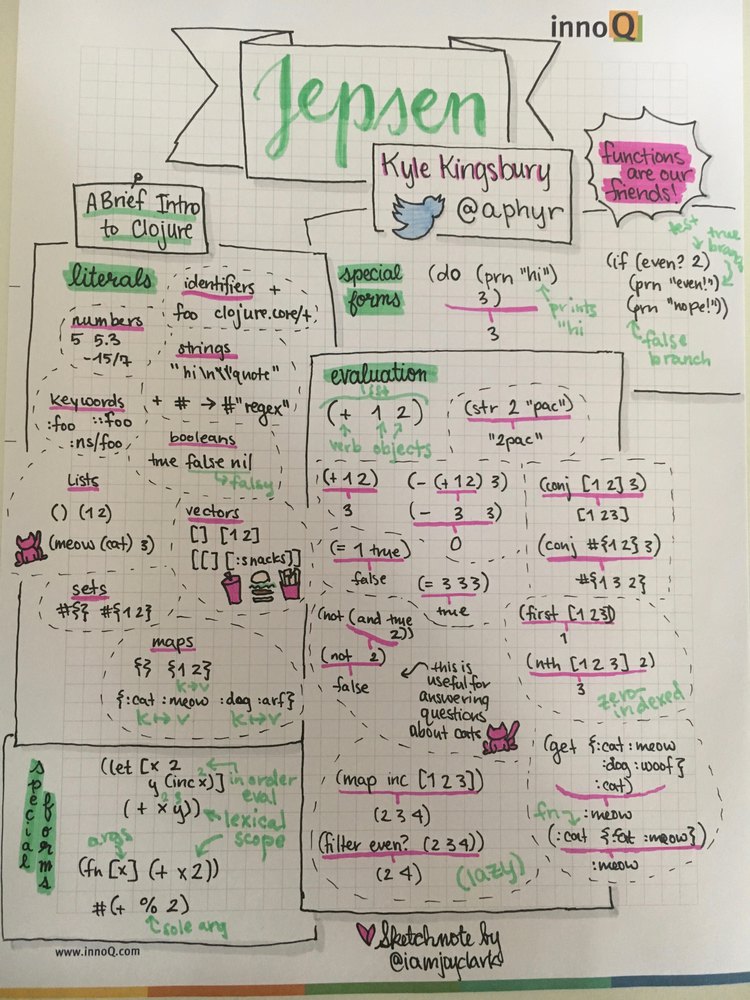 innoQ
Jepsen
Kyle Kingsbury
@aphyr
functions
are our
friends!
A Brief Intro
to Clojure
literals
identifiers +
foo clojure.core/+
numbers
5 5.3
-15/7
strings
"hi\n\"quote"
keywords
:foo ::foo
:ns/foo
+ # → #"regex"
booleans
true false nil
↳ falsy
Lists
() (1 2)
(meow (cat) 3)
vectors
[] [1 2]
[[] [:snacks]]
sets
#{} #{1 2}
maps
{} {1 2}
k↔v
{:cat :meow :dog :arf}
k↔v k↔v
special
forms
(do (prn "hi")
3)
3
prints
"hi
test
true
branch
(if (even? 2)
(prn "even!")
(prn "nope!"))
false
branch
evaluation
list
(+ 1 2)
verb objects
(str 2 "pac")
"2pac"
(+ 1 2)
3
(- (+ 1 2) 3)
(- 3 3)
0
(= 1 true)
false
(= 3 3 3)
true
(not (and true
2))
(not 2)
false
this is
useful for
answering
questions
about cats
(map inc [1 2 3])
(2 3 4)
(filter even? (2 3 4))
(2 4)
(lazy)
(conj [1 2] 3)
[1 2 3]
(conj #{1 2} 3)
#{1 3 2}
(first [1 2 3])
1
(nth [1 2 3] 2)
3
zero-
indexed
(get {:cat :meow
:dog :woof}
:cat)
:meow
fn
(:cat {:cat :meow})
:meow
special
forms
(let [x 2
y (inc x)]
2
(+ x y))
2 3
in order
eval
lexical
scope
args
(fn [x] (+ x 2))
#(+ % 2)
sole arg
www.innoQ.com
Sketchnote by
@iamjayclark